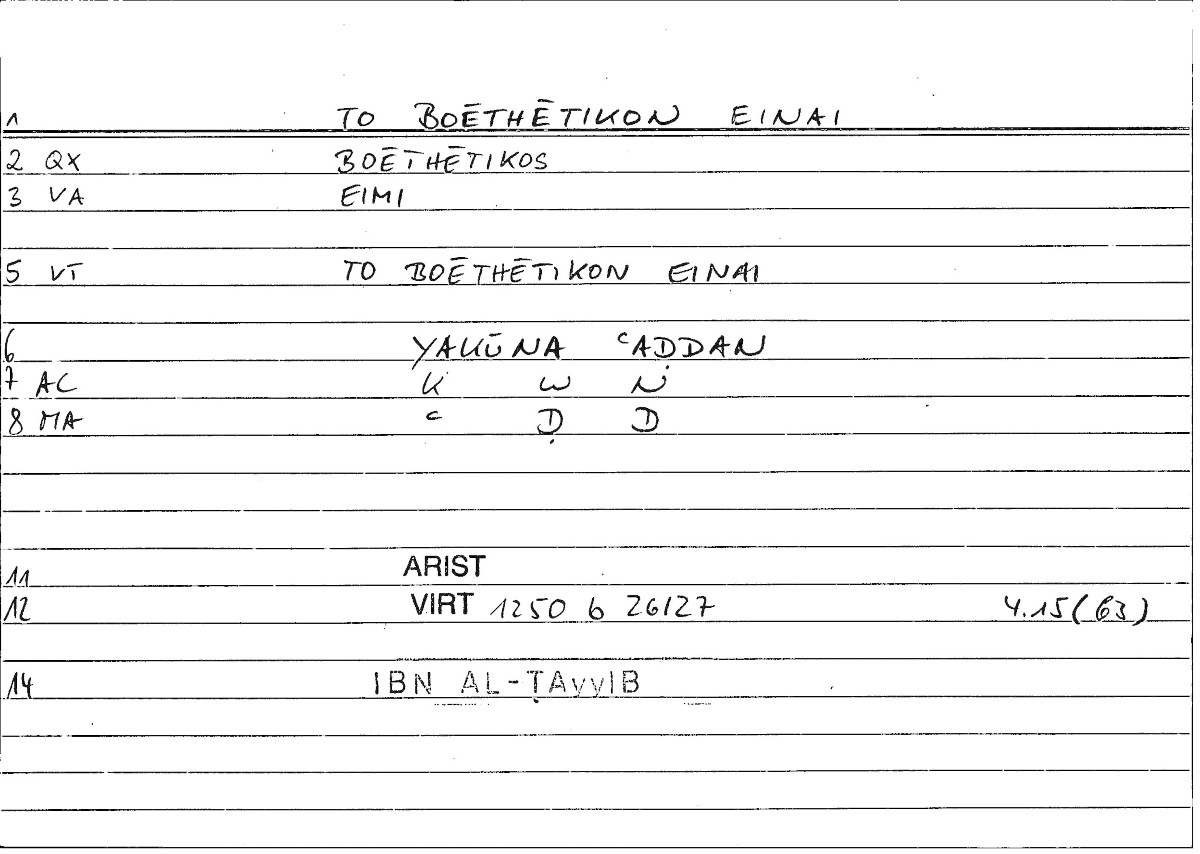 1 TO BOĒTHĒTIKON EINAI
2 QX BOĒTHĒTIKOS
3 VA EIMI
5 VT TO BOĒTHĒTIKON EINAI
6 YAKŪNA ʿAḌDAN
7 AC K W N
8 MA ʿ Ḍ D
11 ARIST
12 VIRT 1250 b 26/27 4.15(63)
14 IBN AL-ṬAyyIB